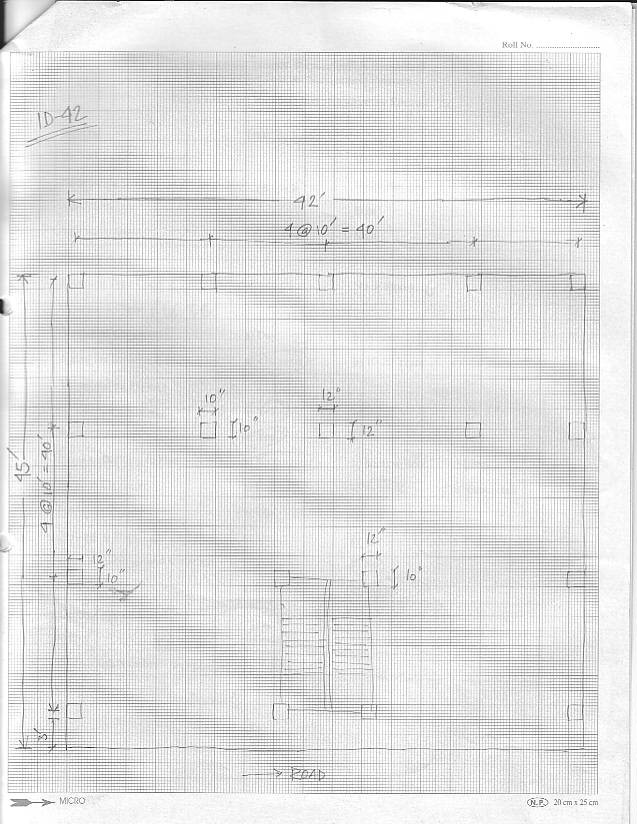 Roll No.
ID-42
42'
4 @ 10' = 40'
10"
12"
10"
12"
45'
4 @ 10' = 40'
12"
12"
10"
10"
3'
→ ROAD
MICRO
N.P. 20 cm x 25 cm